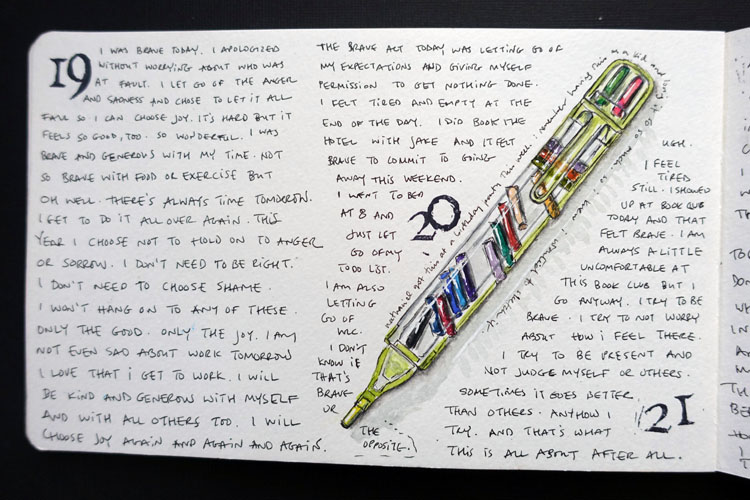 19
I WAS BRAVE TODAY. I APOLOGIZED
WITHOUT WORRYING ABOUT WHO WAS
AT FAULT. I LET GO OF THE ANGER
AND SADNESS AND CHOSE TO LET IT ALL
FALL SO I CAN CHOOSE JOY. IT'S HARD BUT IT
FEELS SO GOOD, TOO. SO WONDERFUL. I WAS
BRAVE AND GENEROUS WITH MY TIME. NOT
SO BRAVE WITH FOOD OR EXERCISE BUT
OH WELL. THERE'S ALWAYS TIME TOMORROW.
I GET TO DO IT ALL OVER AGAIN. THIS
YEAR I CHOOSE NOT TO HOLD ON TO ANGER
OR SORROW. I DON'T NEED TO BE RIGHT.
I DON'T NEED TO CHOOSE SHAME.
I WON'T HANG ON TO ANY OF THESE.
ONLY THE GOOD. ONLY THE JOY. I AM
NOT EVEN SAD ABOUT WORK TOMORROW
I LOVE THAT i GET TO WORK. I WILL
BE KIND AND GENEROUS WITH MYSELF
AND WITH ALL OTHERS TOO. I WILL
CHOOSE JOY AGAIN AND AGAIN AND AGAIN.
THE BRAVE ACT TODAY WAS LETTING GO OF
MY EXPECTATIONS AND GIVING MYSELF
PERMISSION TO GET NOTHING DONE.
I FELT TIRED AND EMPTY AT THE
END OF THE DAY. I DID BOOK THE
HOTEL WITH JAKE AND IT FELT
BRAVE TO COMMIT TO GOING
AWAY THIS WEEKEND.
I WENT TO BED
AT 8 AND
JUST LET
GO OF MY
TODO LIST.
I AM ALSO
LETTING
GO OF
I DON'T
KNOW IF
THAT'S
BRAVE
OR
THE
OPPOSITE.
20
nathaniel got this at a birthday party this week. i remember having this as a kid and
UGH.
I FEEL
TIRED
STILL. I SHOWED
UP AT BOOK CLUB
TODAY AND THAT
FELT BRAVE. I AM
ALWAYS A LITTLE
UNCOMFORTABLE AT
THIS BOOK CLUB BUT I
GO ANYWAY. I TRY TO BE
BRAVE. I TRY TO NOT WORRY
ABOUT HOW I FEEL THERE.
I TRY TO BE PRESENT AND
NOT JUDGE MYSELF OR OTHERS.
SOMETIMES IT GOES BETTER
THAN OTHERS. ANYHOW I
TRY. AND THAT'S WHAT
THIS IS ALL ABOUT AFTER ALL.
21